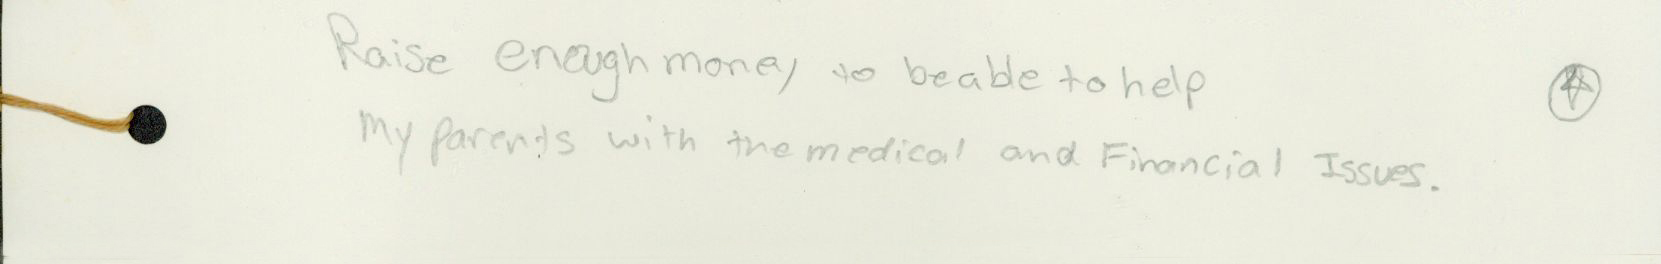 Raise enough money to be able to help
my parents with the medical and Financial Issues.